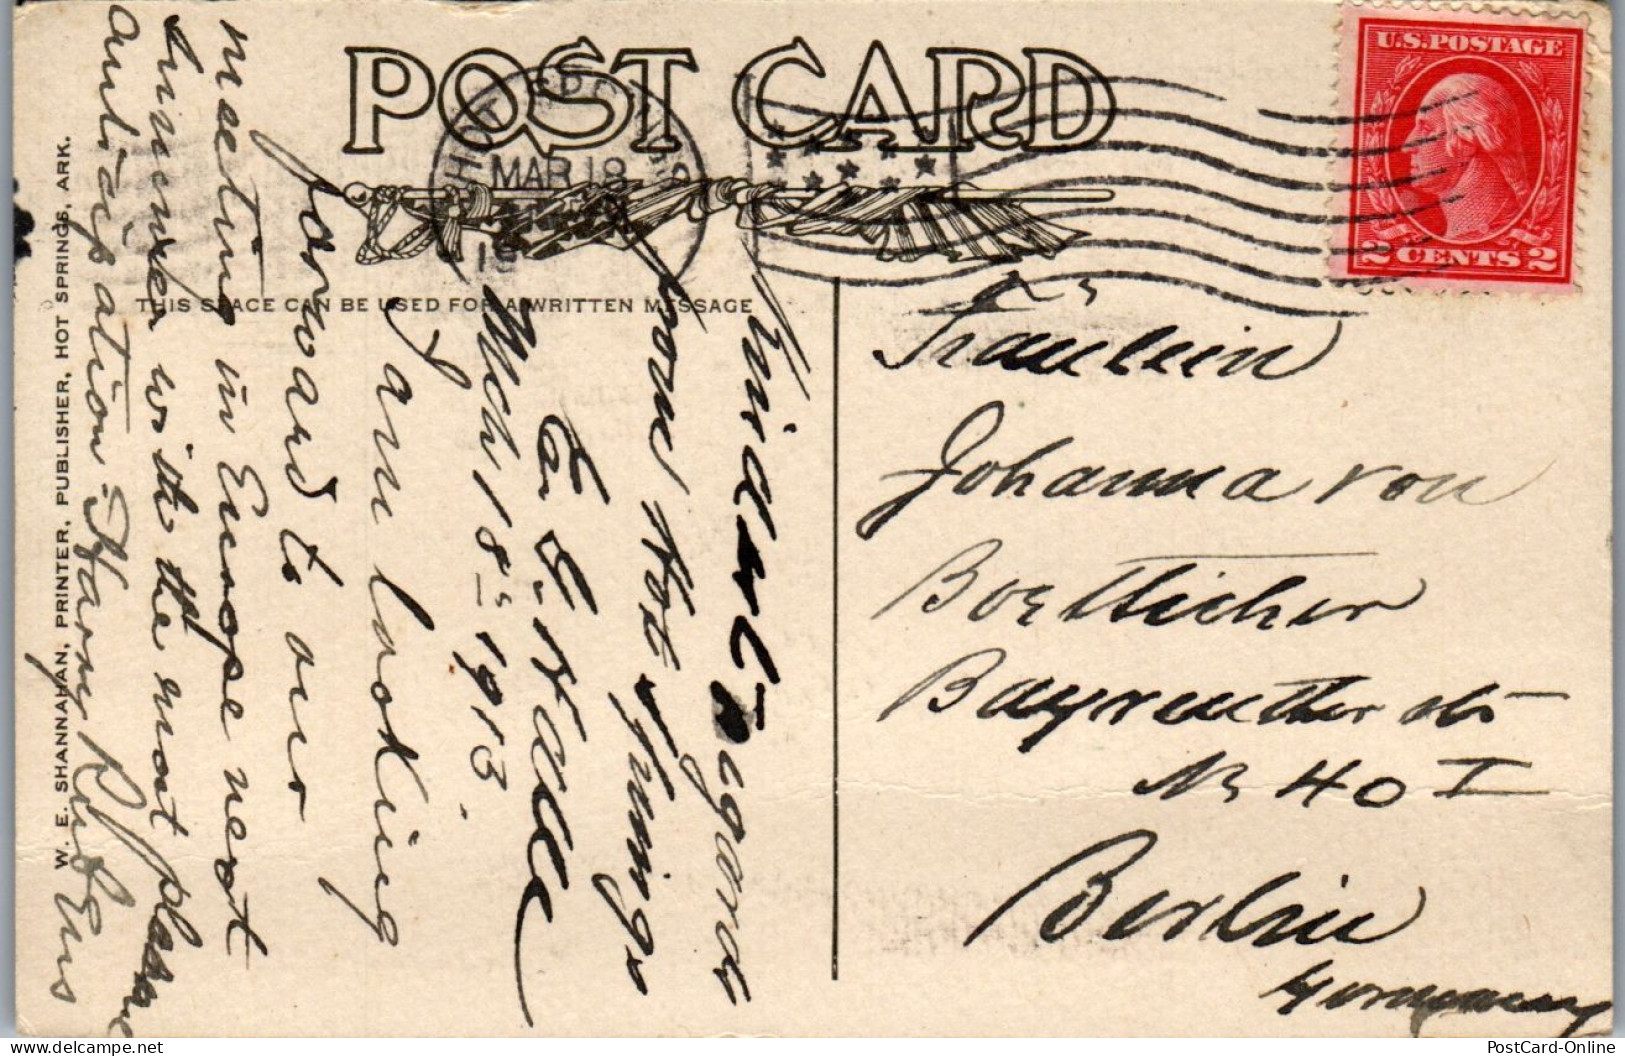 POST CARD
HOT SPRINGS
MAR 18
U.S. POSTAGE
2 CENTS 2
THIS SPACE CAN BE USED FOR A WRITTEN MESSAGE
W. E. SHANNAHAN, PRINTER, PUBLISHER, HOT SPRINGS, ARK.
Kindest regards
from Hot Springs
Mch 18" 1913.
I am looking
forward to our
meeting in Europe next
Summer with the most pleasant
anticipation. Harry
Fräulein
Johanna von
Boetticher
Bayreuther str
Nr 40 I
Berlin
Germany
PostCard-Online